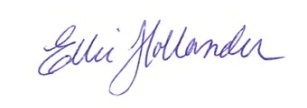 Ellie Hollander